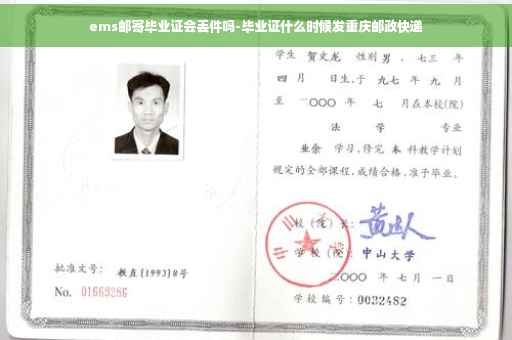 ems邮寄毕业证会丢件吗-毕业证什么时候发重庆邮政快递
学生 贺文龙 性别 男 、七三 年
四 月 日生,于 九七 年 九 月
至 二〇〇〇 年 七 月在本校(院)
法 学 专业
业余 学习,修完 本 科教学计划
规定的全部课程,成绩合格,准予毕业。
校(院)长:
学 校(院): 中山大学
批准文号: 教直(1993)8号
二〇〇〇 年 七 月 一日
No. 01669286
学校编号:0032482